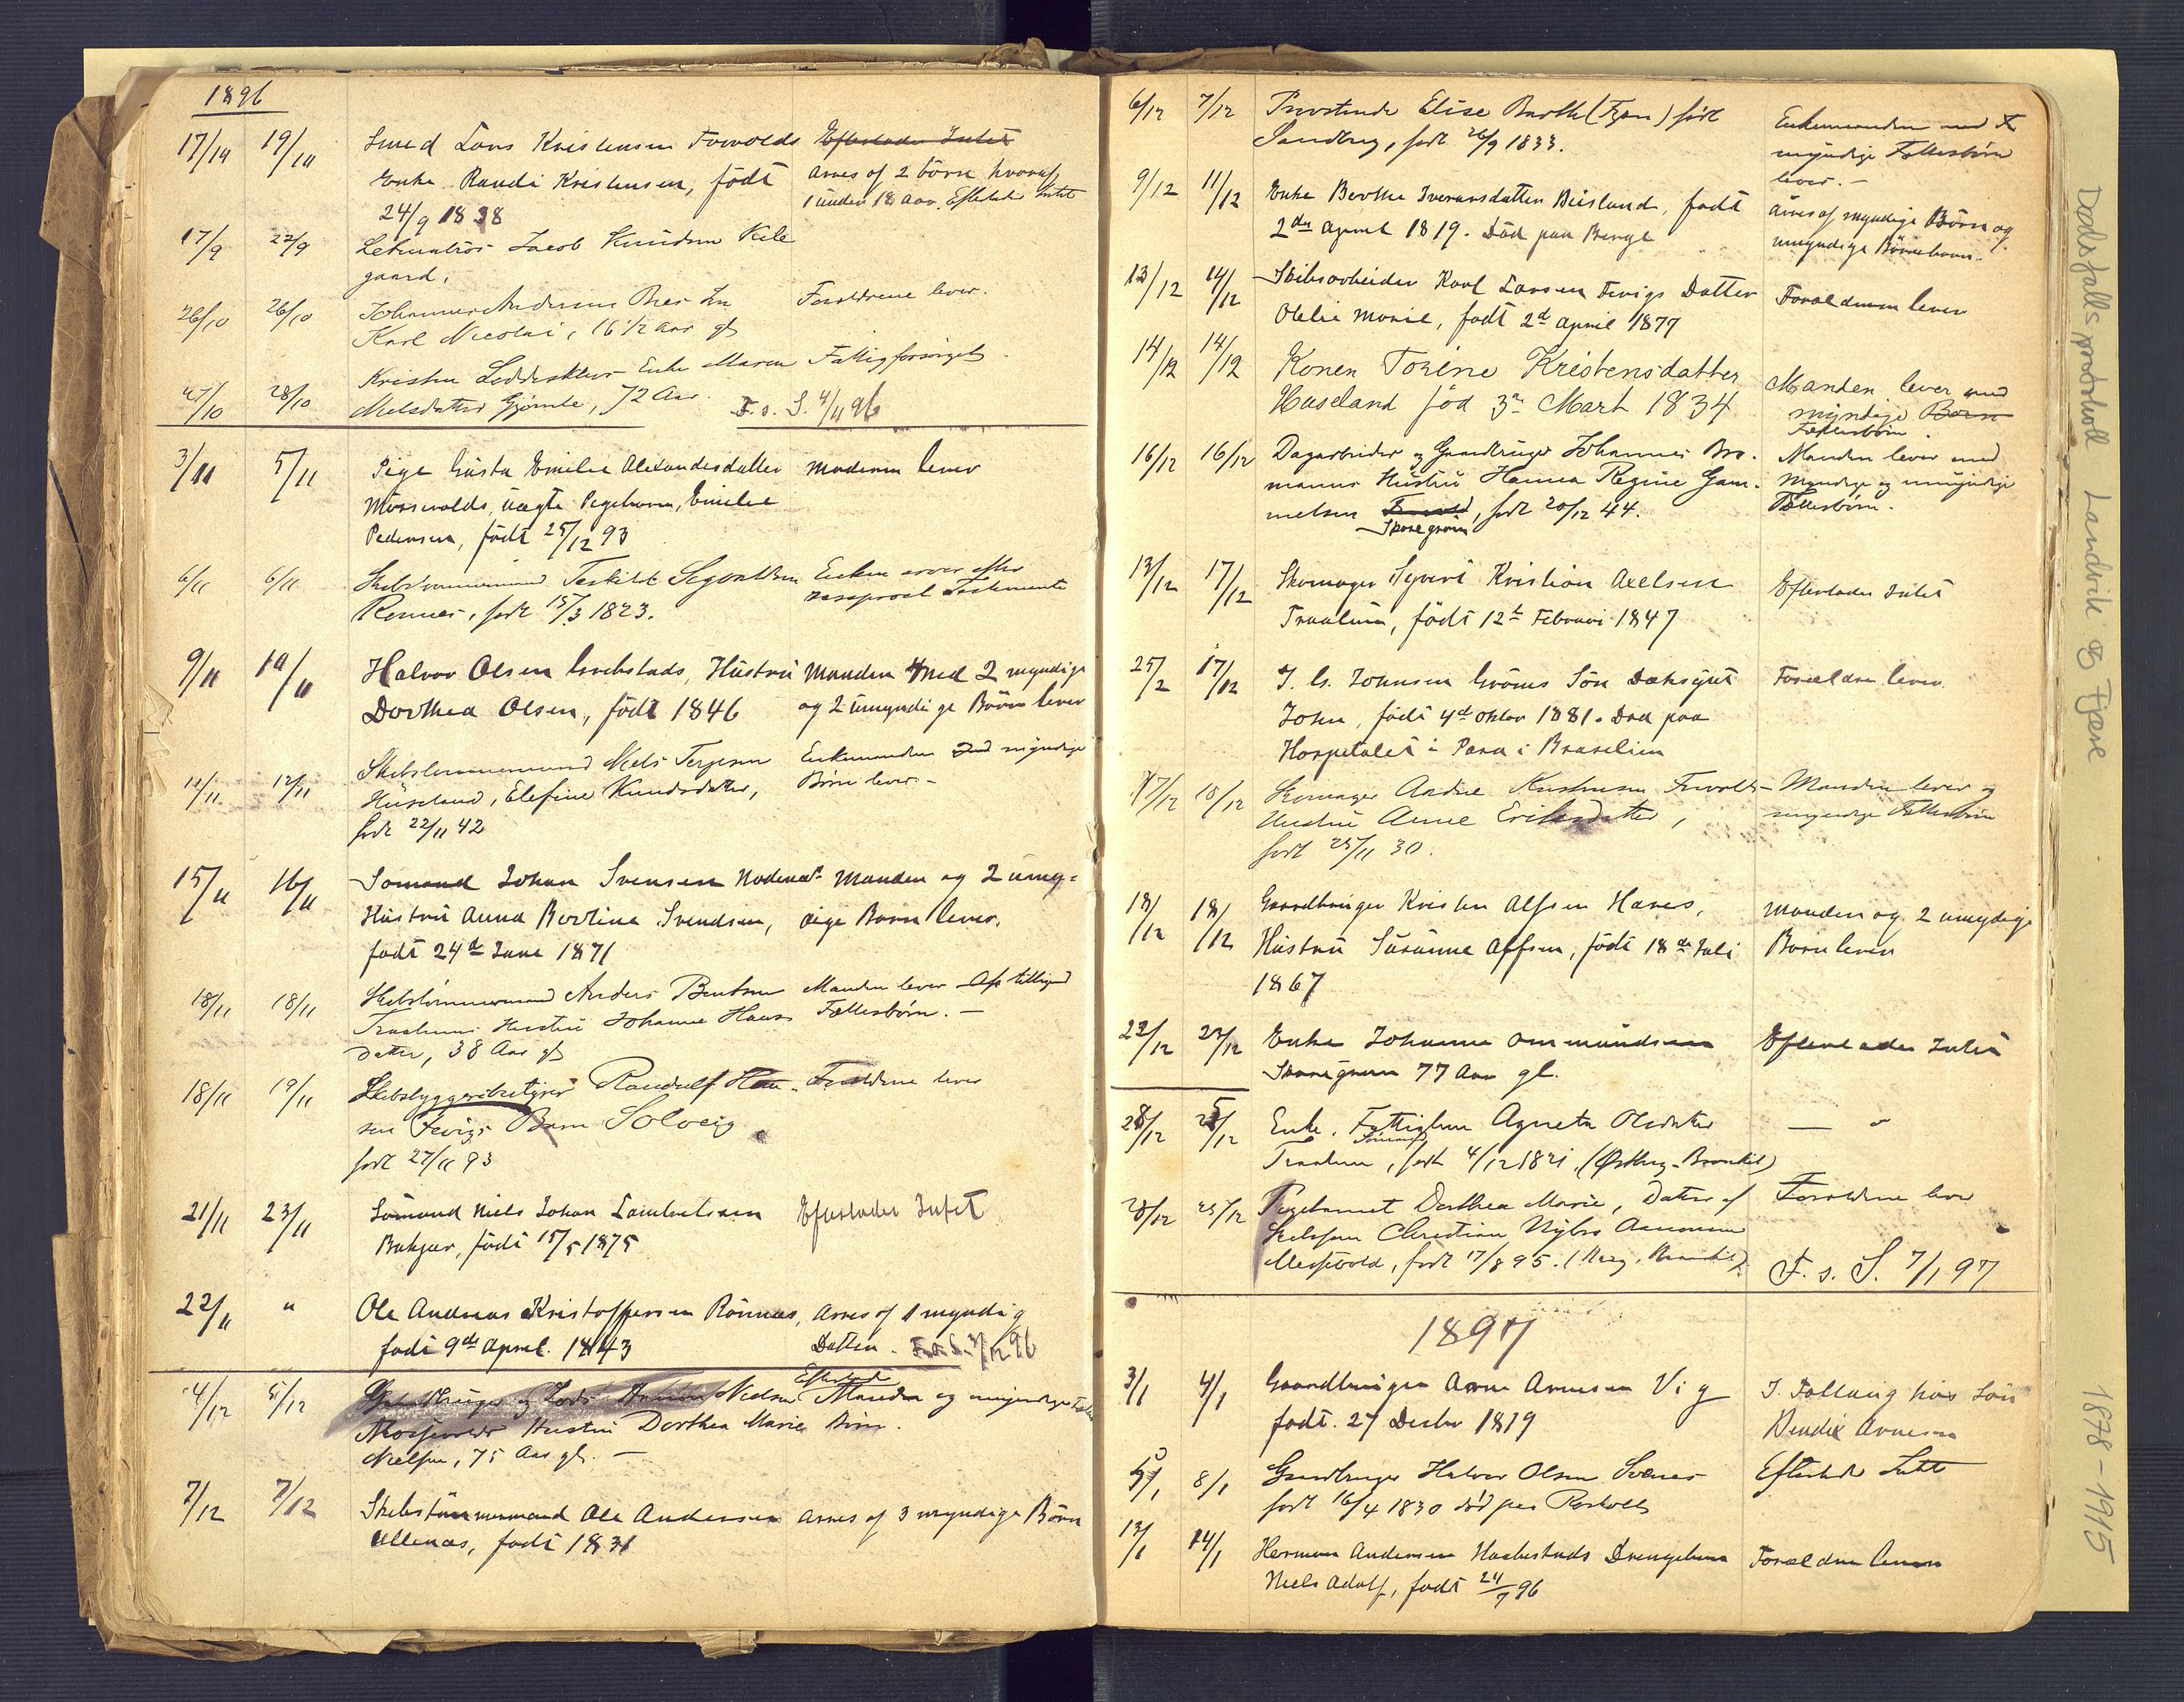 1896
17/10 19/10 Smed Lars Kristensen Favolds Efterlader Intet
Enke Randi Kristensen, født arves of 2 børn hvoraf
24/9 1838 1 under 18 aar. Efterlader Intet
17/9 22/9 Letmatros Jacob Knudsen Kile
gaard,
26/10 26/10 Johannes Andersens Søn Forældrene lever.
Karl Nicolai, 16 1/2 Aar gl
27/10 28/10 Kristen Enke Maren Fattigforsørget
Nielsdatter Gjømle, 72 Aar. F. s. S. 4/11 96
3/11 5/11 Pige Gusta Emilie Alexandersdatter Moderen lever
Morsvolds, uægte Pigebarn, Emilie
Pedersen, født 25/12 93
6/11 6/11 Skibstømmermand Terkild Segontsen Enken arver efter
Rønnes, født 15/3 1823. reciprokt Testamente
9/11 10/11 Halvor Olsen Grebstads, Hustru Manden med 2 myndige
Dorthea Olsen, født 1846 og 2 umyndige Børn lever
12/11 12/11 Skibstømmermand Niels Terjesen Enkemanden med myndige
Hüseland, Elefine Knudsdatter, Børn lever.-
født 22/11 42
15/11 16/11 Sømand Johan Svensen Manden og 2 umyn=
Hustru Anna Bertine Svendsen, dige Børn lever.
født 24de Juni 1871
18/11 18/11 Skibstømmermand Anders Bentsen Manden lever
Hustru Johanne Hans Fællesbørn. -
datter, 38 Aar gl
18/11 19/11 Skibsbyggeribestyrer Randulf Han- Forældrene lever
sen Fevigs Barn Solveig
født 27/11 93
21/11 23/11 Sømand Niels Johan Lambertsen Efterlader Intet
født 15/5 1875
22/11 " Ole Andreas Kristoffersen Rønnes, Arves of 1 myndig
født 9de April. 1843 Datter. F. s. S. 3/12 96
4/12 5/12 Nielsen Efterlader Manden og umyndige
Hustru Dorthea Marie Børn.
Nielsen, 75 Aar gl. -
7/12 7/12 Skibstømmermand Ole Andersen arves of 3 myndige Børn
Ullenes, født 1831
6/12 7/12 Provstinde Elise Barth (Fjære) født Enkemanden med
Sandberg, født 26/9 1833. myndige Fællesbørn
lever.-
9/12 11/12 Enke Berthe Iversdatter Beisland, født arves af myndige Børn og
2den April 1819. Død paa Berge umyndige Børnebørn.
13/12 14/12 Skibsarbeider Karl Larsen Fevigs Datter Forældrene lever
Otelie Marie, født 2d April 1877
14/12 14/12 Konen Tomine Kristensdatter Manden lever med
Huseland fød 3n Mart 1834 myndige Børn
Fællesbørn
16/12 16/12 Dagarbeider og Gaardbruger Johannes Bro- Manden lever med
manns Hustru Hanna Regine Gam- myndige og umyndige
melsen, født 20/12 44. Fællesbørn.
Skaregrøm
13/12 17/12 Skomager Syvert Kristian Axelsen Efterlader Intet
Traalum, født 12te Februar 1847
25/2 17/12 J. G. Johnsen Grøms Søn Daksgut Forældre lever
John, født 4de oktbr 1881. Død paa
Hospitalet i Para i Brasilien
17/12 18/12 Skomager Andre Kristensen Manden lever og
Hustru Anne Eriksdatter, myndige Fællesbørn
født 25/11 30.
18/12 18/12 Gaardbruger Kristen Alfsen Haves, Manden og 2 umyndige
Hustru Susanne Alfsen, født 18de Juli Børn lever
1867
22/12 23/12 Enke Johanne Ommundsen Efterlader Intet
Skaregrøm 77 Aar gl.
28/12 25/12 Enke. Fattiglem Agneta Olsdatter — "
Traalum, født 4/12 1821.
23/12 25/12 Pigebarnet Dorthea Marie, Datter af Forældrene lever
Christian Nybro Aanonsen
født 17/8 95. F. s. S. 7/1 97
1897
3/1 4/1 Gaardbruger Arne Arnesen Vig I. Følling hos Søn
født. 27 Decbr 1819 Bendix Arnesen
5/1 8/1 Gaardbruger Halvor Olsen Efterlader Intet
født 16/4 1830 død paa
13/1 14/1 Herman Andersen Haabestads Drengebarn Forældrene lever
Niels Adolf, født 24/9 96
Dødsfallsprotokoll Landvik og Fjære 1878-1915